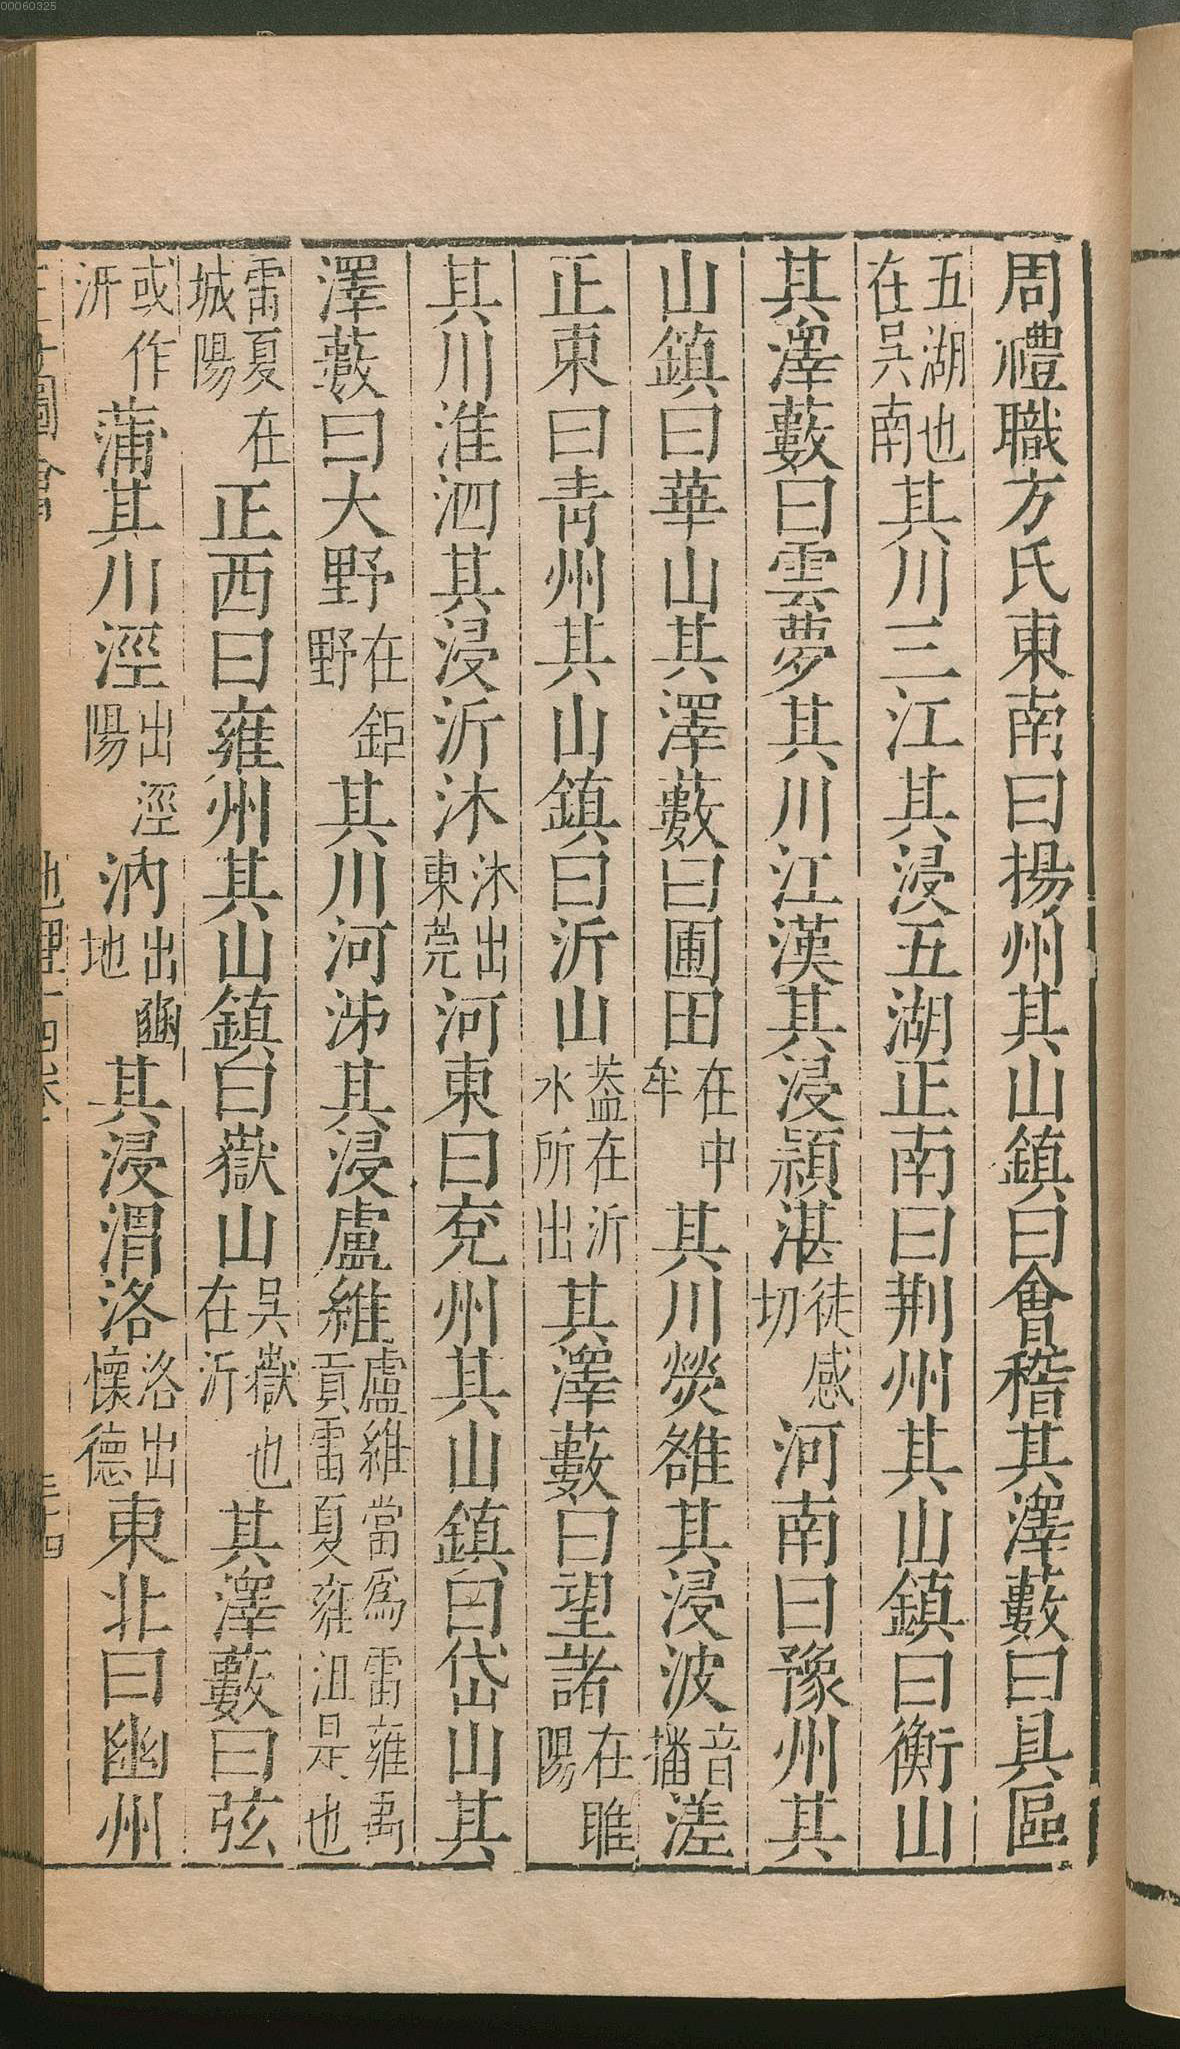 00060325
周禮職方氏東南曰揚州其山鎮曰會稽其澤藪曰具區
五湖也在吳南其川三江其浸五湖正南曰荆州其山鎮曰衡山
其澤藪曰雲夢其川江漢其浸潁湛徒感切河南曰豫州其
山鎮曰華山其澤藪曰圃田在中牟其川熒雒其浸波音播溠
正東曰青州其山鎮曰沂山蓋在沂水所出其澤藪曰望諸在睢陽
其川淮泗其浸沂沭沭出東莞河東曰兗州其山鎮曰岱山其
澤藪曰大野在鉅野其川河泲其浸盧維盧維當爲雷雍禹貢雷夏雍沮是也
雷夏在城陽正西曰雍州其山鎮曰嶽山吳嶽也在汧其澤藪曰弦
或作汧蒲其川涇出涇陽汭出豳地其浸渭洛洛出懷德東北曰幽州